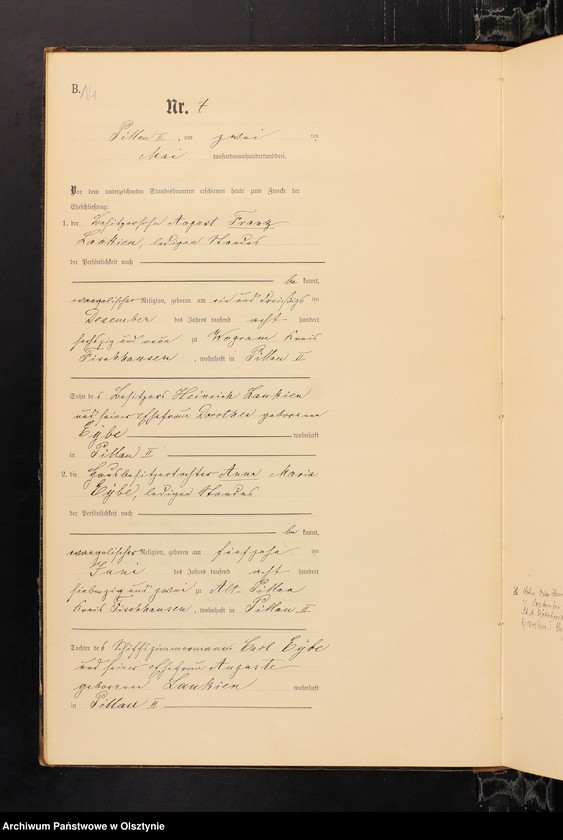 B.
14
Nr. 4
Pillau II, am zwei ten
Mai tausendneunhundertunddrei.
Vor dem unterzeichneten Standesbeamten erschienen heute zum Zwecke der
Eheschließung:
1. der Besitzersohn August Franz
Laukien, ledigen Standes
der Persönlichkeit nach
be kannt,
evangelischer Religion, geboren am ein und dreißigs ten
Dezember des Jahres tausend acht hundert
sechszig und neun zu Wogram Kreis
Fischhausen, wohnhaft in Pillau II
Sohn des Besitzers Heinrich Laukien
und seiner Ehefrau Dorothea geborene
Eÿbe wohnhaft
in Pillau II
2. die Hausbesitzertochter Anna Maria
Eÿbe, ledigen Standes
der Persönlichkeit nach
be kannt,
evangelischer Religion, geboren am fünfzehn ten
Juni des Jahres tausend acht hundert
siebenzig und zwei zu Alt-Pillau
Kreis Fischhausen, wohnhaft in Pillau II
Tochter des Schiffszimmermanns Carl Eÿbe
und seiner Ehefrau Auguste
geborenen Laukien wohnhaft
in Pillau II
Archiwum Państwowe w Olsztynie